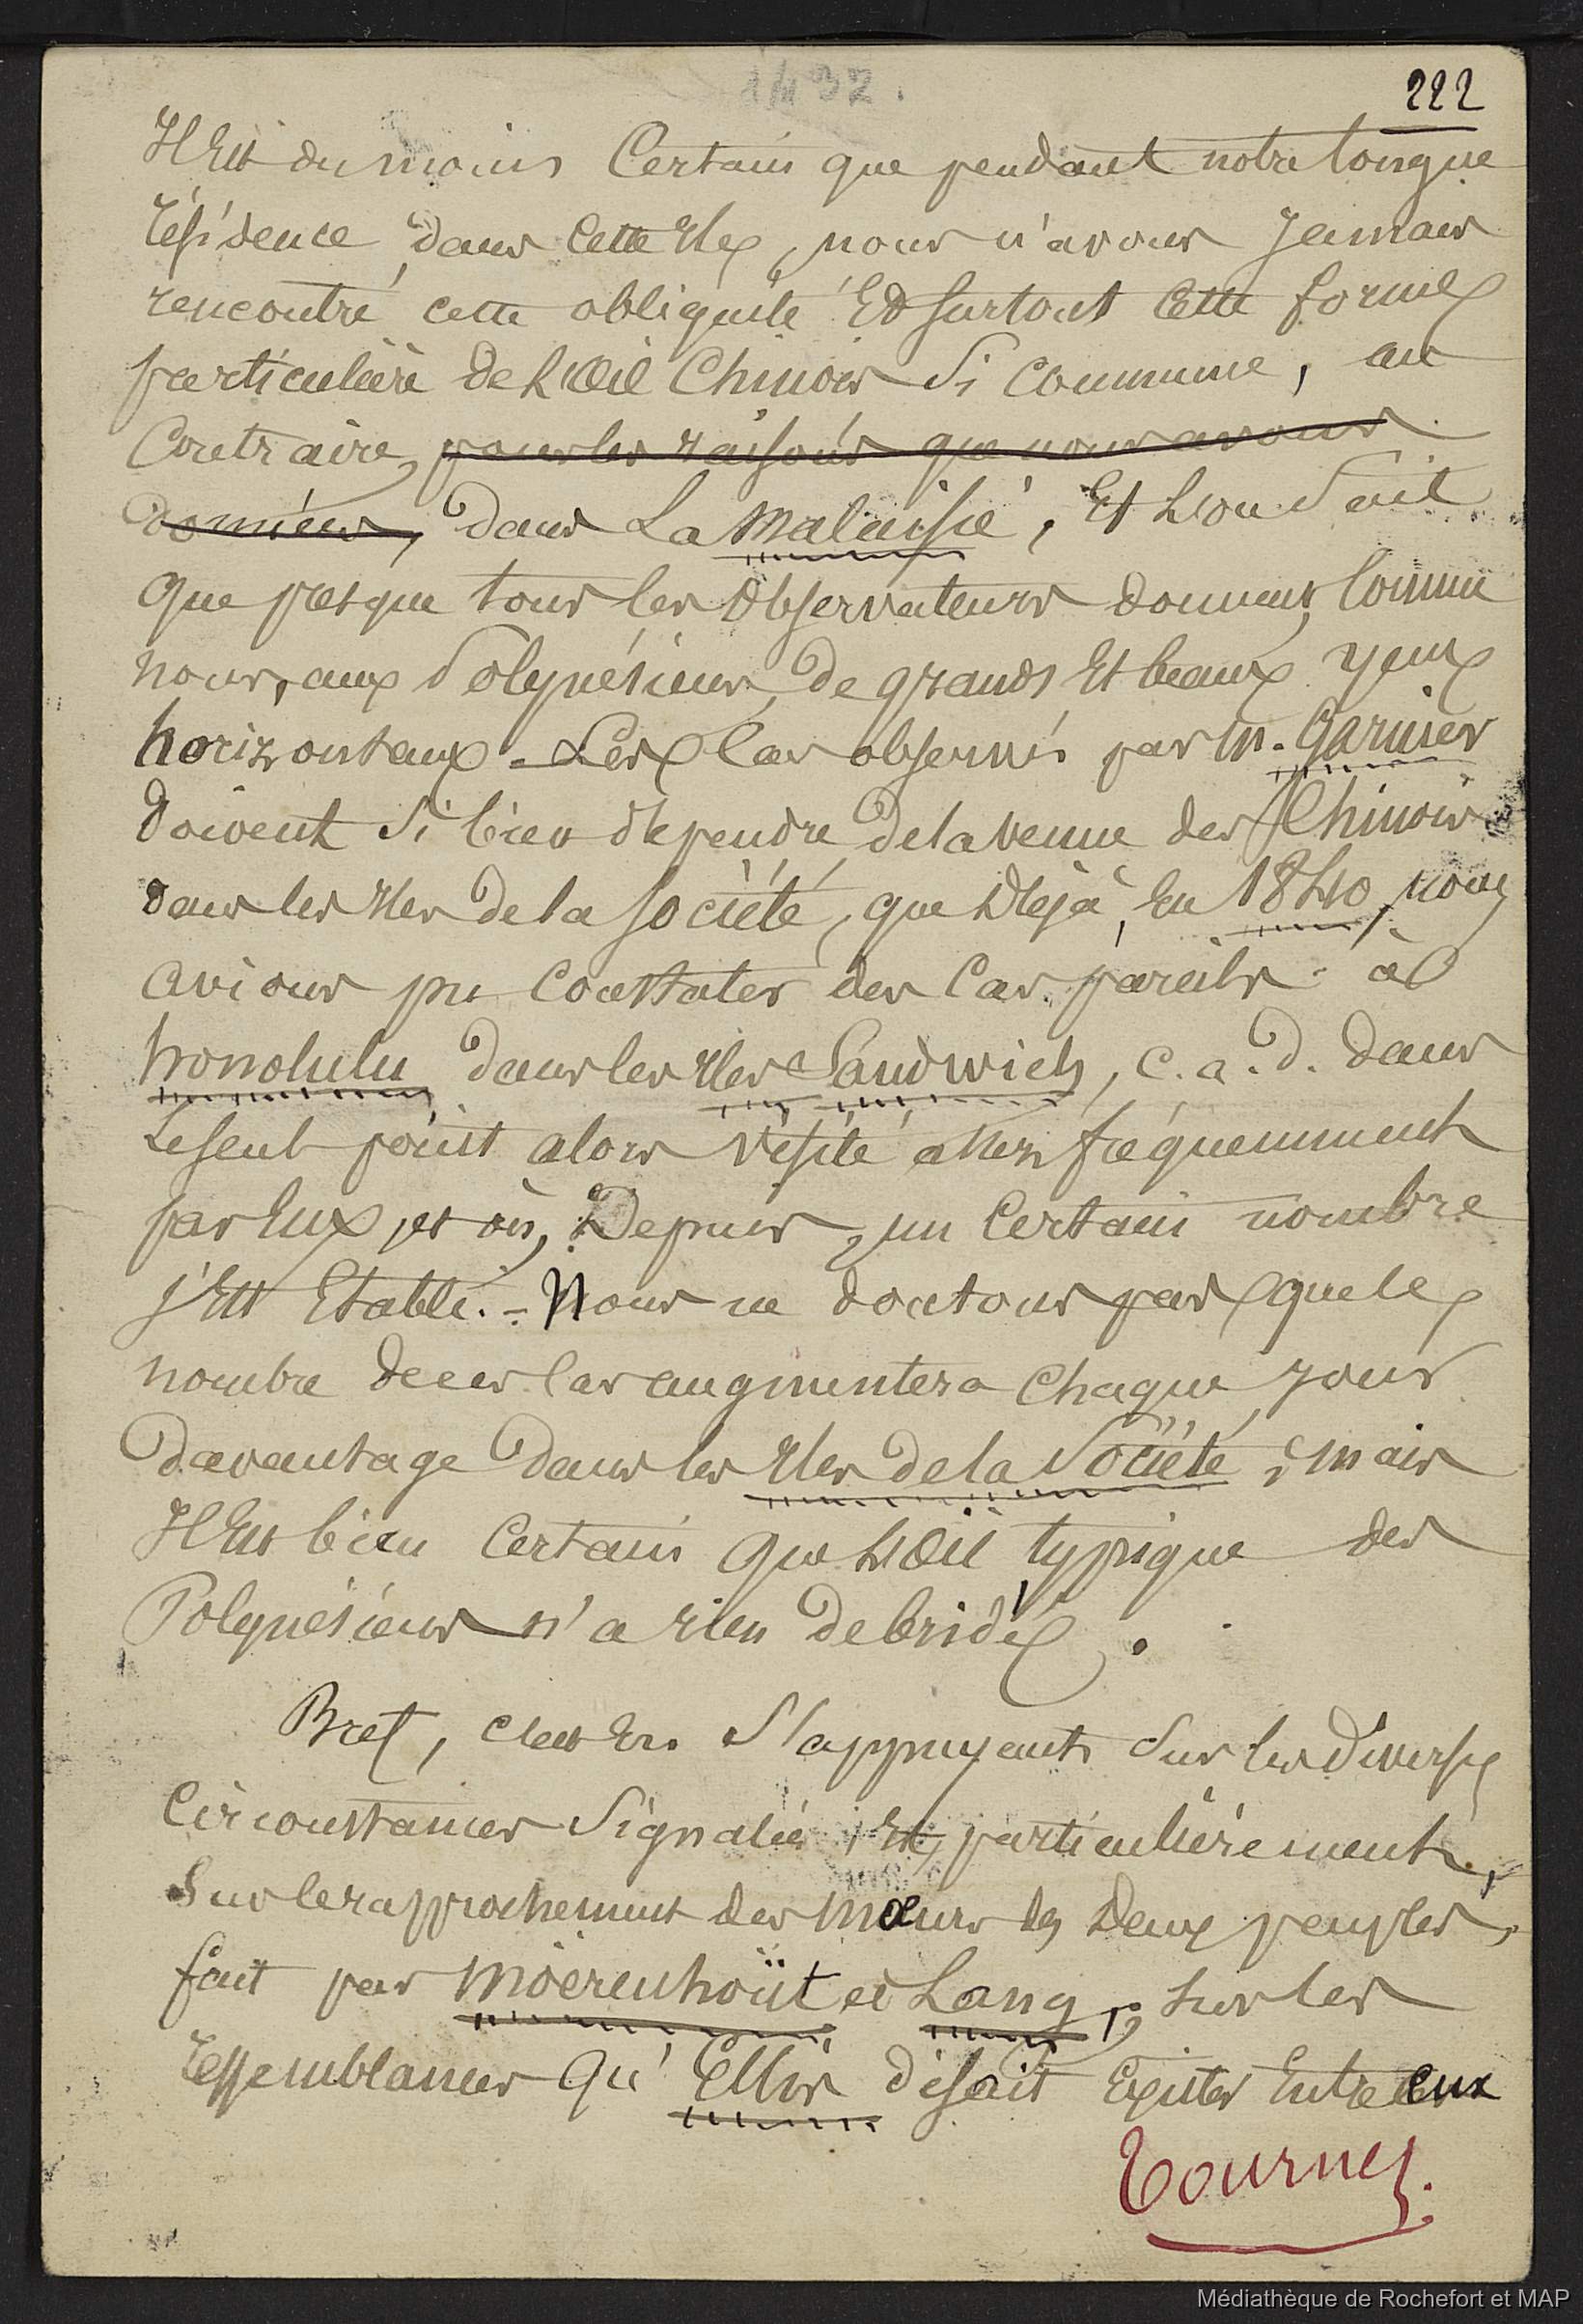 1432.
222
Il Est du moins Certain que pendant notre longue
résidence dans Cette Ile, nous n'avons Jamais
rencontré cette obliquité Et surtout Cette forme
particulière de L'œil Chinois Si Commune, au
Contraire, pour les raisons que nous avons
données, dans La Malaisie, Et L'on Sait
que presque tous les observateurs donnent, Comme
nous, aux Polynésiens, de grands Et beaux yeux
horizontaux. - Les Cas observés par M. Garnier
doivent Si bien dépendre de la venue des Chinois
dans les Iles de la Société, que Déjà, En 1840, nous
avions pu Constater des Cas pareils à
honolulu dans les Iles Sandwich, c. a. d. dans
Le seul point alors visité assez fréquemment
par Eux, et où, Depuis, un Certain nombre
s'Est Etabli. - Nous ne doutons pas que le
nombre de ces Cas augmentera Chaque Jour
davantage dans les Iles de la Société ; mais
Il Est bien Certain que L'œil typique des
Polynésiens n'a rien de bridé.
Bref, c'est En S'appuyant Sur les Diverses
Circonstances Signalées, Et, particulièrement,
Sur le rapprochement des mœurs des Deux peuples,
fait par Möerenhoüt et Lang ; sur les
ressemblances qu'Ellis disait Exister Entre eux
Tournez.
Médiathèque de Rochefort et MAP